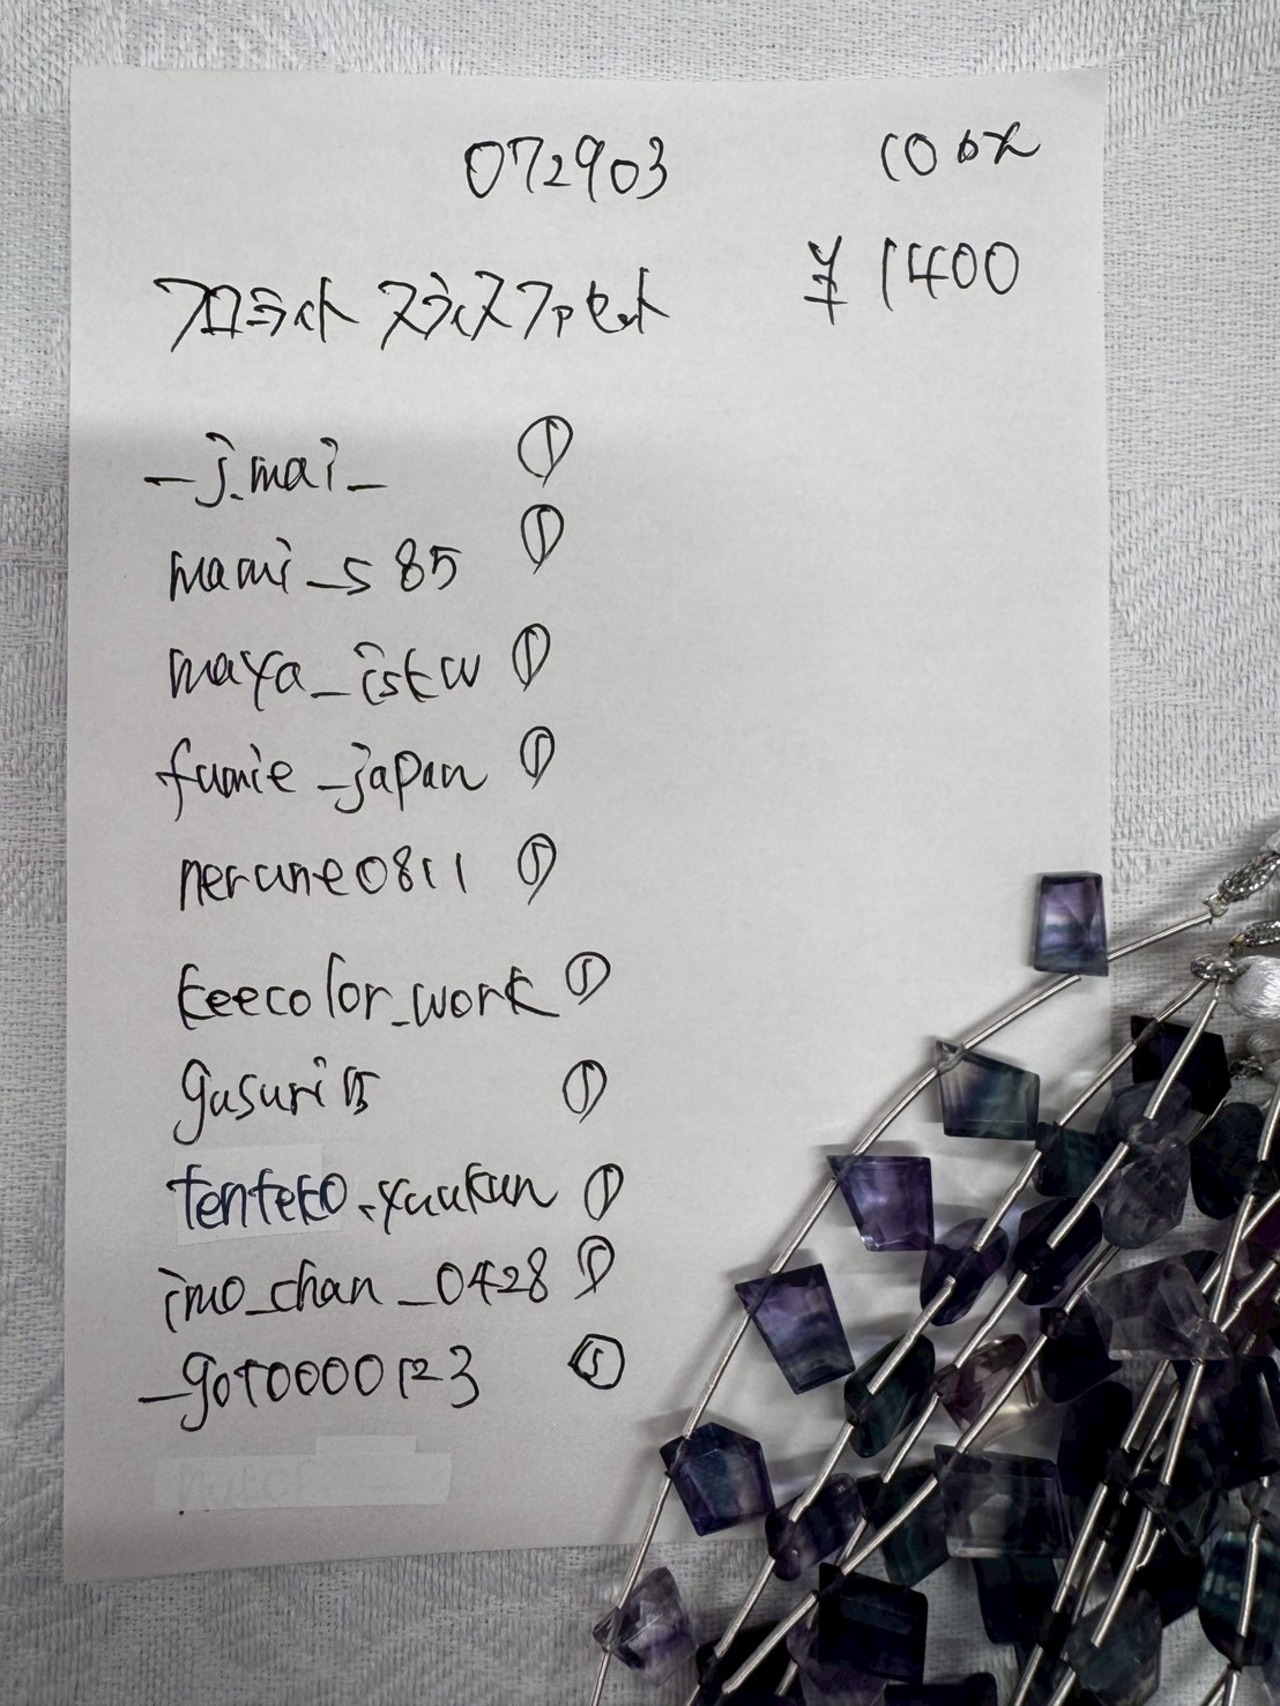 072903 10日以
¥1400
フロライト スライスファセット
_j.mai_ ①
mami_s85 ①
maya_istw ①
fumie_japan ①
nerune0811 ①
keecolor_work ①
gusuri15 ①
tenteko.yuukun ①
imo_chan_0428 ①
_goto000123 ①